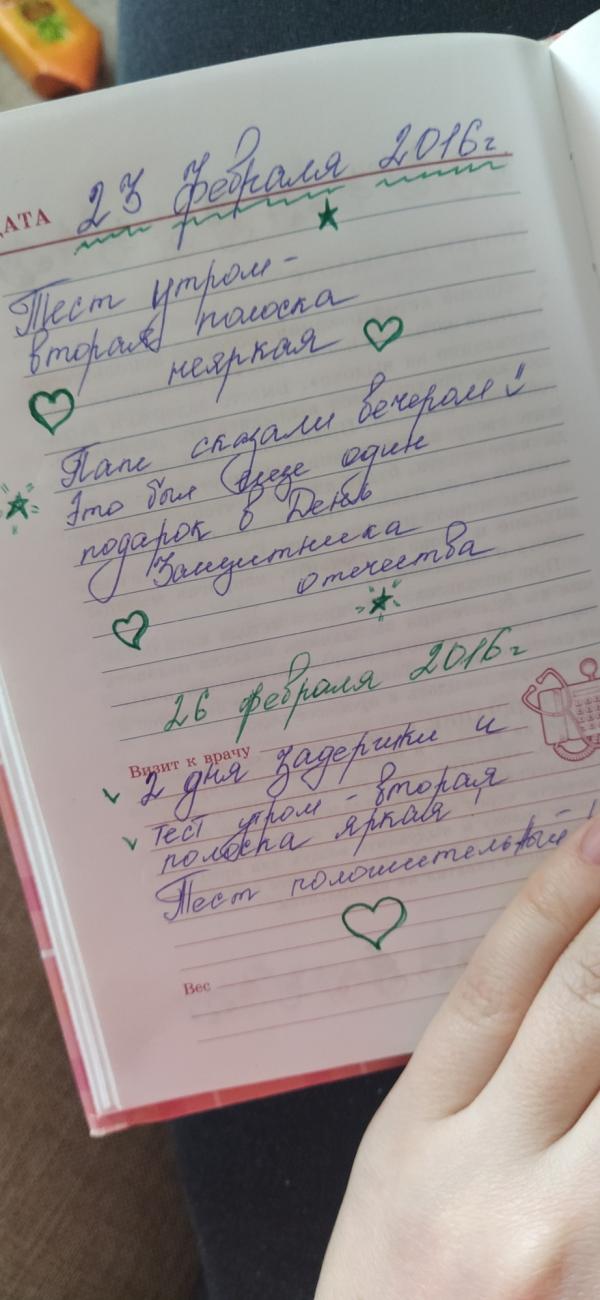 ДАТА 23 февраля 2016г.
Тест утром -
вторая полоска
неяркая
Папе сказали вечером
Это был еще один
подарок в День
Защитника
отечества
26 февраля 2016г
Визит к врачу
2 дня задержки и
тест утром - вторая
полоска яркая!
Тест положительный!
Вес